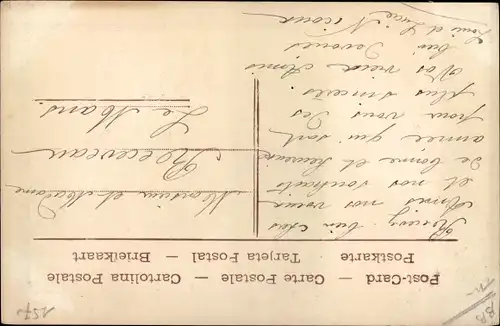 Post-Card — Carte Postale — Cartolina Postale
Postkarte — Tarjeta Postal — Briefkaart
Recevez bien chers
Amis nos voeux
et nos souhaits
de bonne et heureuse
année qui sont
pour vous des
plus sincères
Vos vieux Amis
bien Dévoués
Louis et Lucie
Monsieur et Madame
Le Mans
157